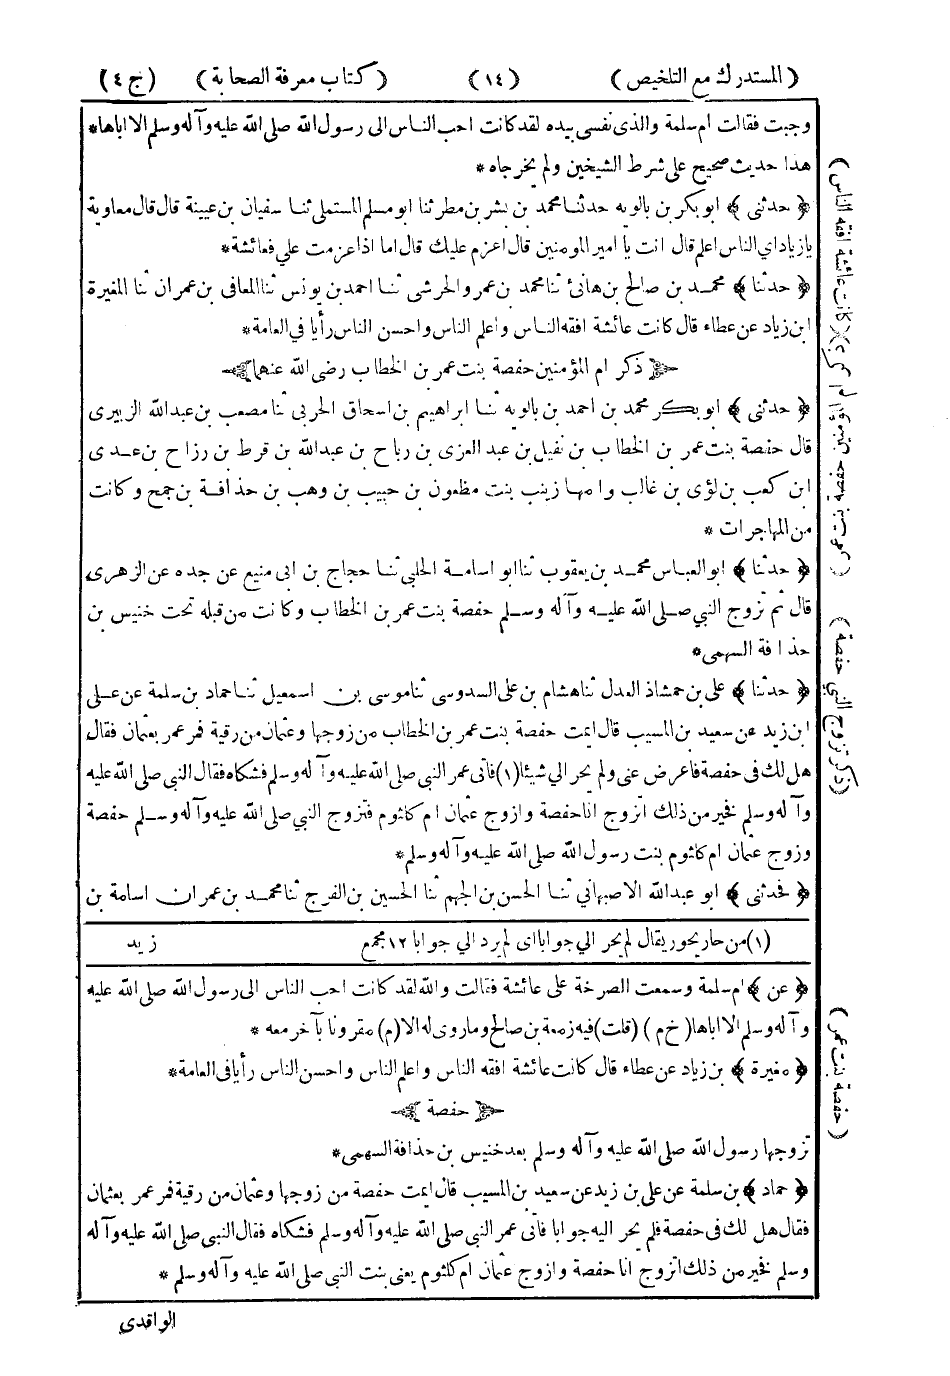 (المستدرك مع التلخيص) (١٤) (كتاب معرفة الصحابة) (ج ٤)
وجبت فقالت ام سلمة والذى نفسى بيده لقد كانت احب الناس الى رسول الله صلى الله عليه وآله وسلم الا اباها*
هذا حديث صحيح على شرط الشيخين ولم يخرجاه *
﴿ حدثنى ﴾ ابو بكر بن بالويه حدثنا محمد بن بشر بن مطر ثنا ابو مسلم المستملى ثنا سفيان بن عيينة قال قال معاوية
يا زياد اي الناس اعلم قال انت يا امير المومنين قال اعزم عليك قال اما اذا عزمت علي فعائشة*
﴿ حدثنا ﴾ محمد بن صالح بن هانئ ثنا محمد بن عمرو الحرشى ثنا احمد بن يونس ثنا المعافى بن عمران ثنا المغيرة
ابن زياد عن عطاء قال كانت عائشة افقه الناس واعلم الناس واحسن الناس رأيا في العامة*
﴿ ذكر ام المؤمنين حفصة بنت عمر بن الخطاب رضى الله عنهما ﴾
﴿ حدثنى ﴾ ابو بكر محمد بن احمد بن بالويه ثنا ابراهيم بن اسحاق الحربي ثنا مصعب بن عبدالله الزبيرى
قال حفصة بنت عمر بن الخطاب بن نفيل بن عبد العزى بن رباح بن عبدالله بن قرط بن رزاح بن عدى
ابن كعب بن لؤى بن غالب وامها زينب بنت مظعون بن حبيب بن وهب بن حذافة بن جمح وكانت
من المهاجرات *
﴿ حدثنا ﴾ ابو العباس محمد بن يعقوب ثنا ابو اسامة الحلبي ثنا حجاج بن ابى منيع عن جده عن الزهرى
قال ثم تزوج النبي صلى الله عليه وآله وسلم حفصة بنت عمر بن الخطاب وكانت من قبله تحت خنيس بن
حذافة السهمى*
﴿ حدثنا ﴾ على بن حمشاذ العدل ثنا هشام بن على السدوسى ثنا موسى بن اسمعيل ثنا حماد بن سلمة عن على
ابن زيد عن سعيد بن المسيب قال ايمت حفصة بنت عمر بن الخطاب من زوجها وعثمان من رقية فمر عمر بعثمان فقال
هل لك فى حفصة فاعرض عنى ولم يحر الي شيئا (١) فأتى عمر النبى صلى الله عليه وآله وسلم فشكاه فقال النبى صلى الله عليه
وآله وسلم فخير من ذلك اتزوج انا حفصة وازوج عثمان ام كلثوم فتزوج النبي صلى الله عليه وآله وسلم حفصة
وزوج عثمان ام كلثوم بنت رسول الله صلى الله عليه وآله وسلم*
﴿ فحدثنى ﴾ ابو عبدالله الاصبهاني ثنا الحسن بن الجهم ثنا الحسين بن الفرج ثنا محمد بن عمران اسامة بن
زيد
(١) من حار يحور يقال لم يحر الي جوابا اى لم يرد الي جوابا ١٢ مجمع
﴿ عن ﴾ ام سلمة وسمعت الصرخة على عائشة فقالت والله لقد كانت احب الناس الى رسول الله صلى الله عليه
وآله وسلم الا اباها (خ م) (قلت) فيه زمعة بن صالح وما روى له الا (م) مقرونا بآخر معه *
﴿ مغيرة ﴾ بن زياد عن عطاء قال كانت عائشة افقه الناس واعلم الناس واحسن الناس رأيا فى العامة*
﴿ حفصة ﴾
تزوجها رسول الله صلى الله عليه وآله وسلم بعد خنيس بن حذافة السهمى*
﴿ حماد ﴾ بن سلمة عن على بن زيد عن سعيد بن المسيب قال ايمت حفصة من زوجها وعثمان من رقية فمر عمر بعثمان
فقال هل لك فى حفصة فلم يحر اليه جوابا فأتى عمر النبى صلى الله عليه وآله وسلم فشكاه فقال النبى صلى الله عليه وآله
وسلم فخير من ذلك اتزوج انا حفصة وازوج عثمان ام كلثوم يعنى بنت النبى صلى الله عليه وآله وسلم *
الواقدى
(كانت عائشة افقه الناس)
(ذكر تزوج النبي حفصة)
(حفصة بنت عمر)